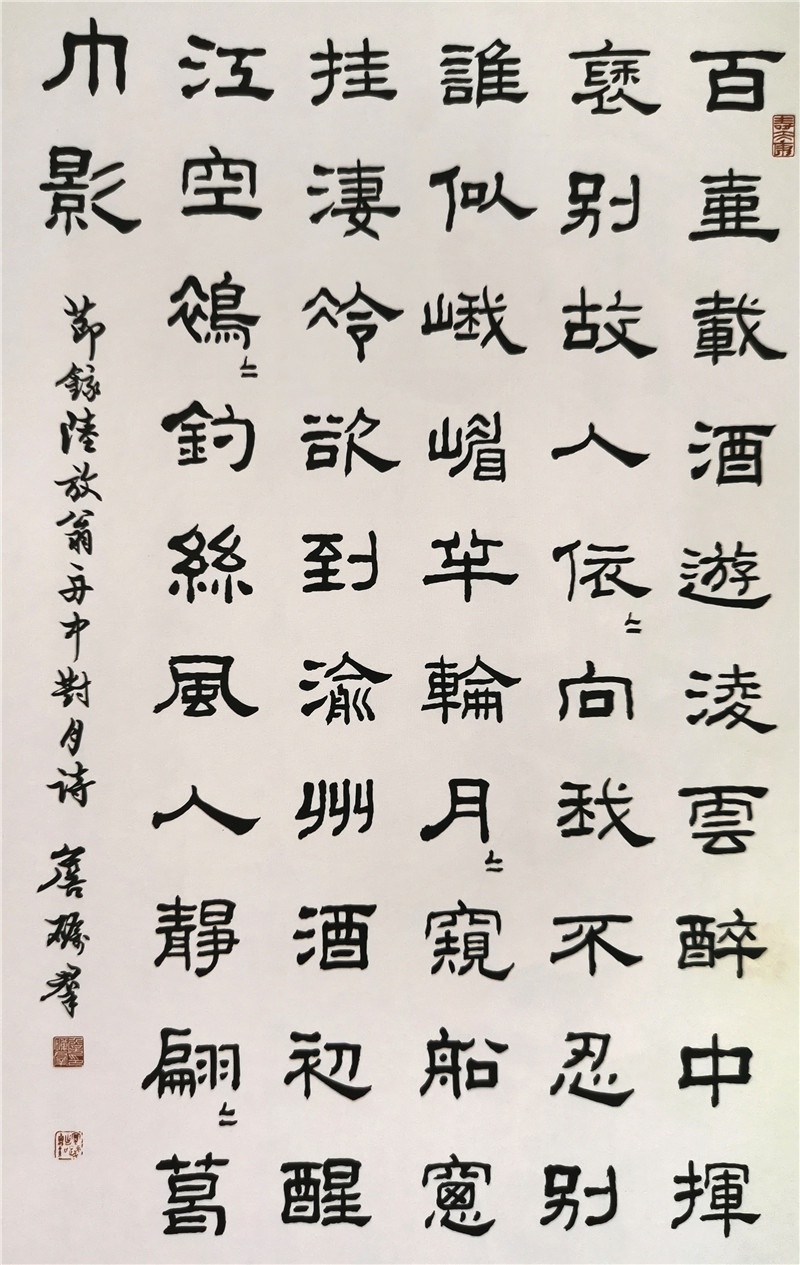 百壷載酒遊淩雲醉中揮
褎别故人依〻向我不忍别
誰似峨嵋半輪月〻窺船窻
挂淒冷欲到渝州酒初醒
江空裊〻釣絲風人靜翩〻葛
巾影
節録陸放翁舟中對月詩